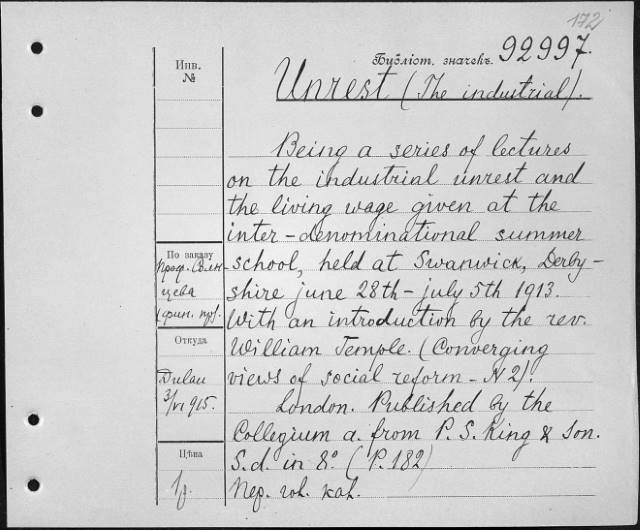 172
Библіот. значекъ. 92997.
Unrest (The industrial).
Being a series of lectures
on the industrial unrest and
the living wage given at the
inter-denominational summer
school, held at Swanwick, Derby-
shire june 28th - july 5th 1913.
With an introduction by the rev.
William Temple. (Converging
views of social reform - N 2).
London. Published by the
Collegium a. from P. S. King & Son.
S. d. in 8.° (P. 182)
Пер. кал.
Инв.
№
По заказу
Проф. Солн-
цева
Откуда
Dulau
3/VI 915.
Цѣна
1